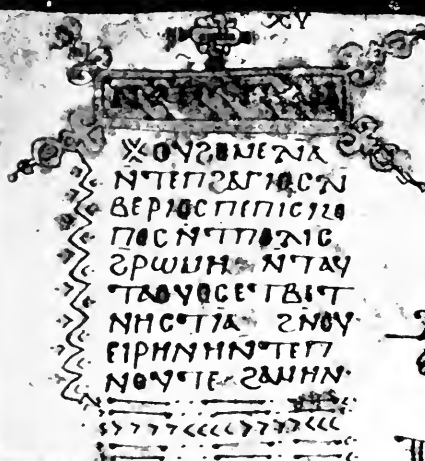 ⲭⲩ
ⲟⲩϩⲟⲙⲉⲗⲓⲁ
ⲛⲧⲉⲡϩⲁⲅⲓⲟⲥⲗⲓ
ⲃⲉⲣⲓⲟⲥ ⲡⲉⲡⲓⲥⲕⲟ
ⲡⲟⲥ ⲛⲧⲡⲟⲗⲓⲥ
ϩⲣⲱⲙⲏ ⲛⲧⲁⲩ
ⲧⲁⲟⲩⲟⲥ ⲉⲧⲃⲉⲧ
ⲛⲏⲥⲧⲓⲁ ϩⲛⲟⲩ
ⲉⲓⲣⲏⲛⲏ ⲛⲧⲉⲡ
ⲛⲟⲩⲧⲉ ϩⲁⲙⲏⲛ